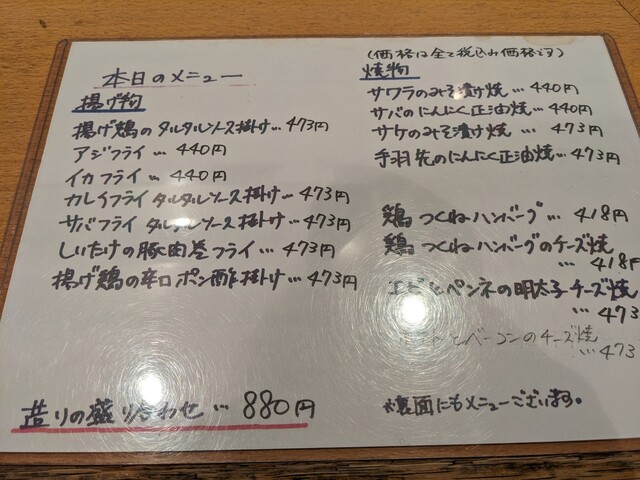 本日のメニュー
揚げ物
揚げ鶏のタルタルソース掛け…473円
アジフライ…440円
イカフライ…440円
カレイフライタルタルソース掛け…473円
サバフライタルタルソース掛け…473円
しいたけの豚肉巻フライ…473円
揚げ鶏の辛口ポン酢掛け…473円
造りの盛り合わせ…880円
(価格は全て税込み価格です)
焼物
サワラのみそ漬け焼…440円
サバのにんにく正油焼…440円
サケのみそ漬け焼…473円
手羽先のにんにく正油焼…473円
鶏つくねハンバーグ…418円
鶏つくねハンバーグのチーズ焼
…418円
エビとペンネの明太子チーズ焼
…473
とベーコンのチーズ焼
…473
※裏面にもメニューございます。